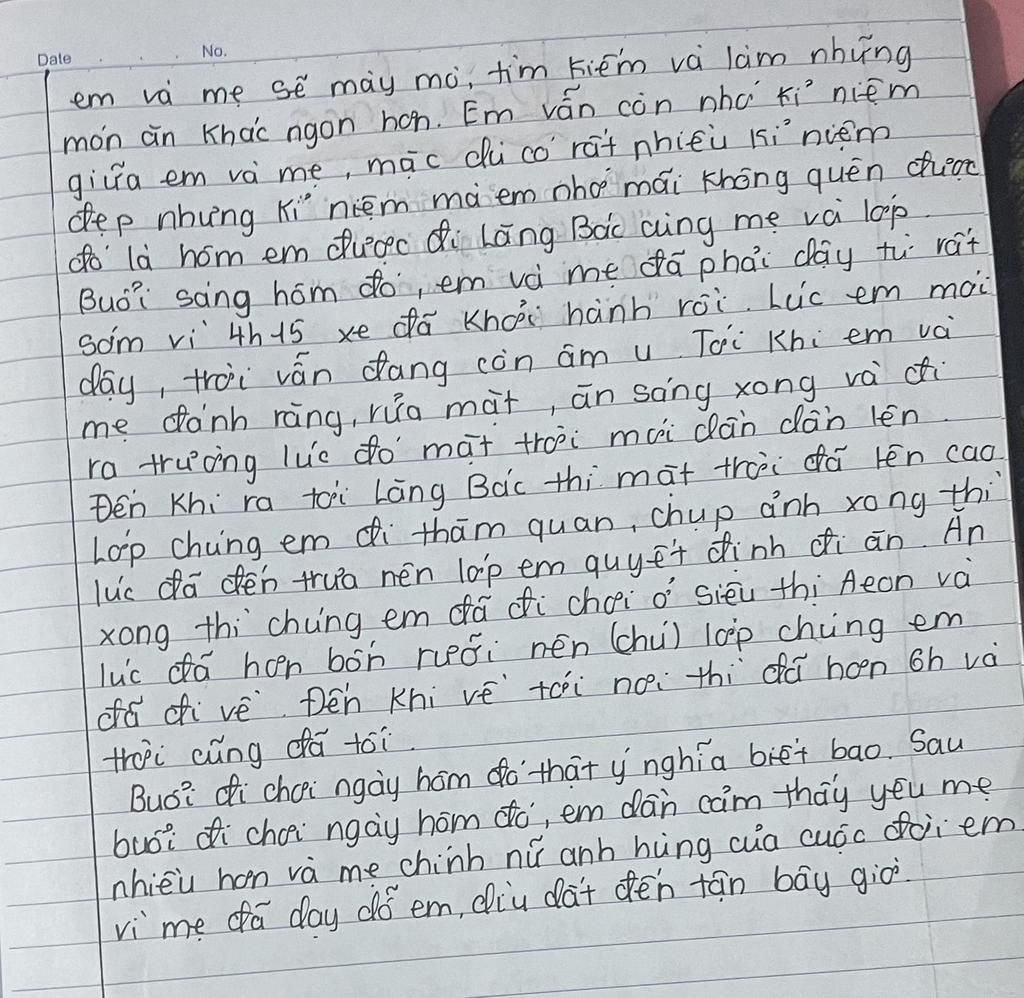 Date No.
em và mẹ sẽ mày mò, tìm kiếm và làm những
món ăn khác ngon hơn. Em vẫn còn nhớ kỉ niệm
giữa em và mẹ, mặc dù có rất nhiều kỉ niệm
đẹp nhưng kỉ niệm mà em nhớ mãi không quên được
đó là hôm em được đi Lăng Bác cùng mẹ và lớp.
Buổi sáng hôm đó, em và mẹ đã phải dậy từ rất
sớm vì 4h15 xe đã khởi hành rồi. Lúc em mới
dậy, trời vẫn đang còn âm u. Tới khi em và
mẹ đánh răng, rửa mặt, ăn sáng xong và đi
ra trường lúc đó mặt trời mới dần dần lên.
Đến khi ra tới Lăng Bác thì mặt trời đã lên cao.
Lớp chúng em đi thăm quan, chụp ảnh xong thì
lúc đã đến trưa nên lớp em quyết định đi ăn. Ăn
xong thì chúng em đã đi chơi ở siêu thị Aeon và
lúc đã hơn bốn rưỡi nên (chú) lớp chúng em
đã đi về. Đến khi về tới nơi thì đã hơn 6h và
trời cũng đã tối.
Buổi đi chơi ngày hôm đó thật ý nghĩa biết bao. Sau
buổi đi chơi ngày hôm đó, em dần cảm thấy yêu mẹ
nhiều hơn và mẹ chính nữ anh hùng của cuộc đời em
vì mẹ đã dạy dỗ em, dìu dắt đến tận bây giờ.